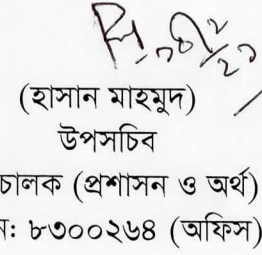 (হাসান মাহমুদ)
উপসচিব
চালক (প্রশাসন ও অর্থ)
ন: ৮৩০০২৬৪ (অফিস)